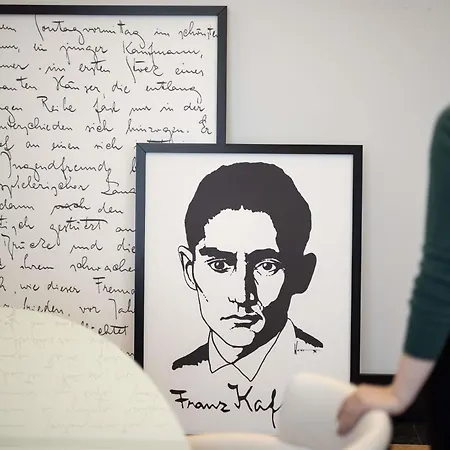 Sonntagvormittag im schönsten
ein junger Kaufmann,
im ersten Stock eines
Häuser, die entlang
Reihe fast nur in der
unterschieden sich hinzogen. Er
an einen sich
Jugendfreund
spielerischer
dann den
gestützt
Brücke und die
ihrem schwachen
wie dieser Freund
vor
Franz Kaf